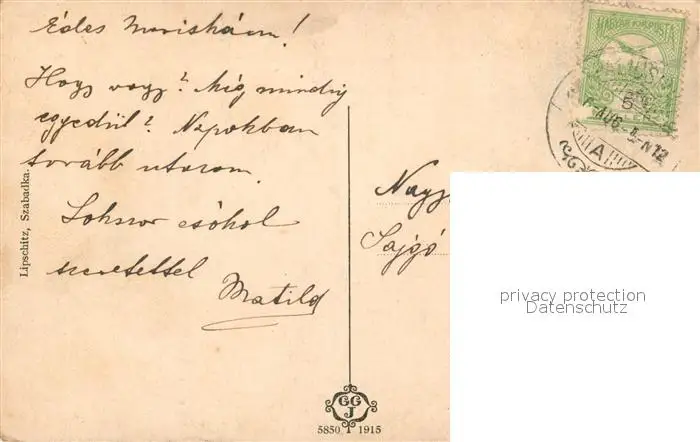 Édes Mariskám!
Hogy vagy? Még mindig
egyedül? Napokban
tovább utazom.
Sokszor csókol
szeretettel
Matild
Lipschitz, Szabadka.
MAGYAR KIR. POSTA
5
AUG
N12
A
Nagy
Sajgó
privacy protection
Datenschutz
GG
J
5850 1915